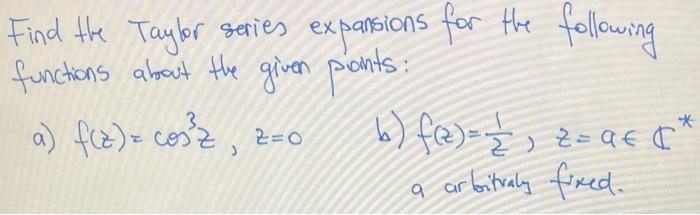 Find the Taylor series expansions for the following
functions about the given points:
a) f(z) = cos³z, z=0 b) f(z) = 1/z, z = a ∈ ℂ*
a arbitraly fixed.